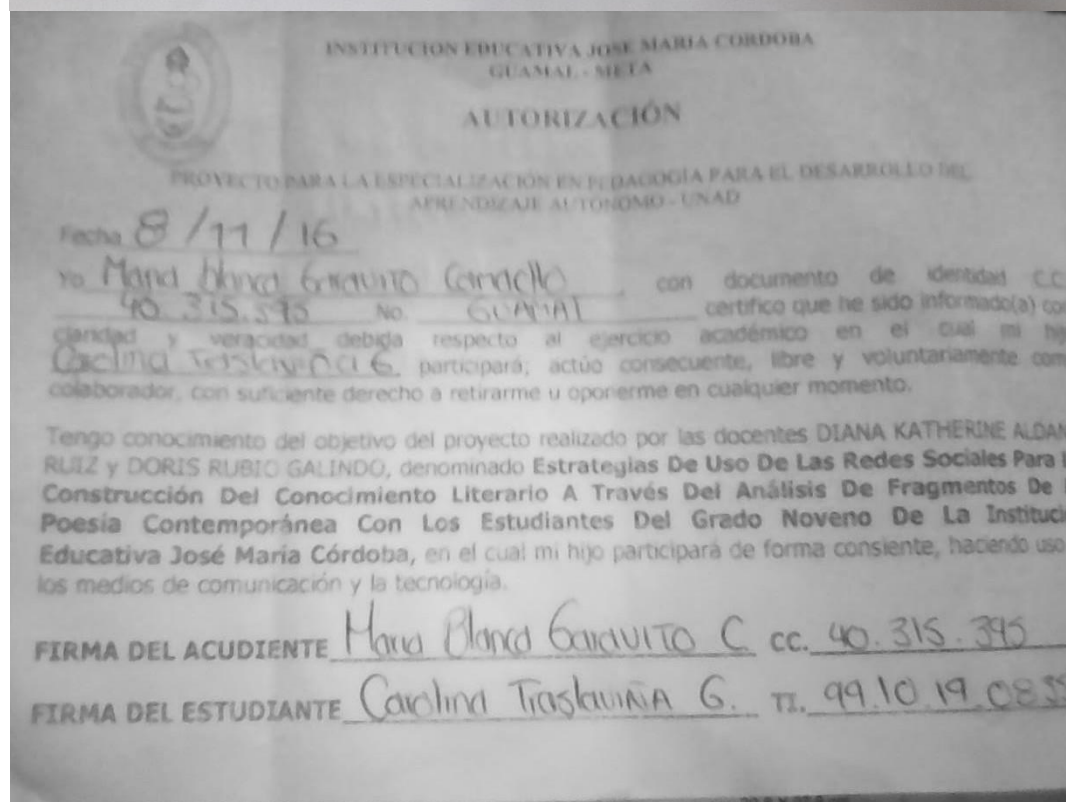 INSTITUCION EDUCATIVA JOSE MARIA CORDOBA
GUAMAL - META
AUTORIZACIÓN
PROYECTO PARA LA ESPECIALIZACIÓN EN PEDAGOGÍA PARA EL DESARROLLO DEL
APRENDIZAJE AUTÓNOMO - UNAD
Fecha 8/11/16
Yo Maria blanca Garavito con documento de identidad C.C.
40.315.395 No. GUAMAL certifico que he sido informado(a) con
claridad y veracidad debida respecto al ejercicio académico en el cual mi hij
Carolina Traslaviña G. participará; actúo consecuente, libre y voluntariamente com
colaborador, con suficiente derecho a retirarme u oponerme en cualquier momento.
Tengo conocimiento del objetivo del proyecto realizado por las docentes DIANA KATHERINE ALDAN
RUIZ y DORIS RUBIO GALINDO, denominado Estrategias De Uso De Las Redes Sociales Para l
Construcción Del Conocimiento Literario A Través Del Análisis De Fragmentos De l
Poesía Contemporánea Con Los Estudiantes Del Grado Noveno De La Instituci
Educativa José María Córdoba, en el cual mi hijo participará de forma consiente, haciendo uso
los medios de comunicación y la tecnología.
FIRMA DEL ACUDIENTE Maria Blanca Garavito C cc. 40.315.395
FIRMA DEL ESTUDIANTE Carolina Traslaviña G. TI. 99.10.19.085